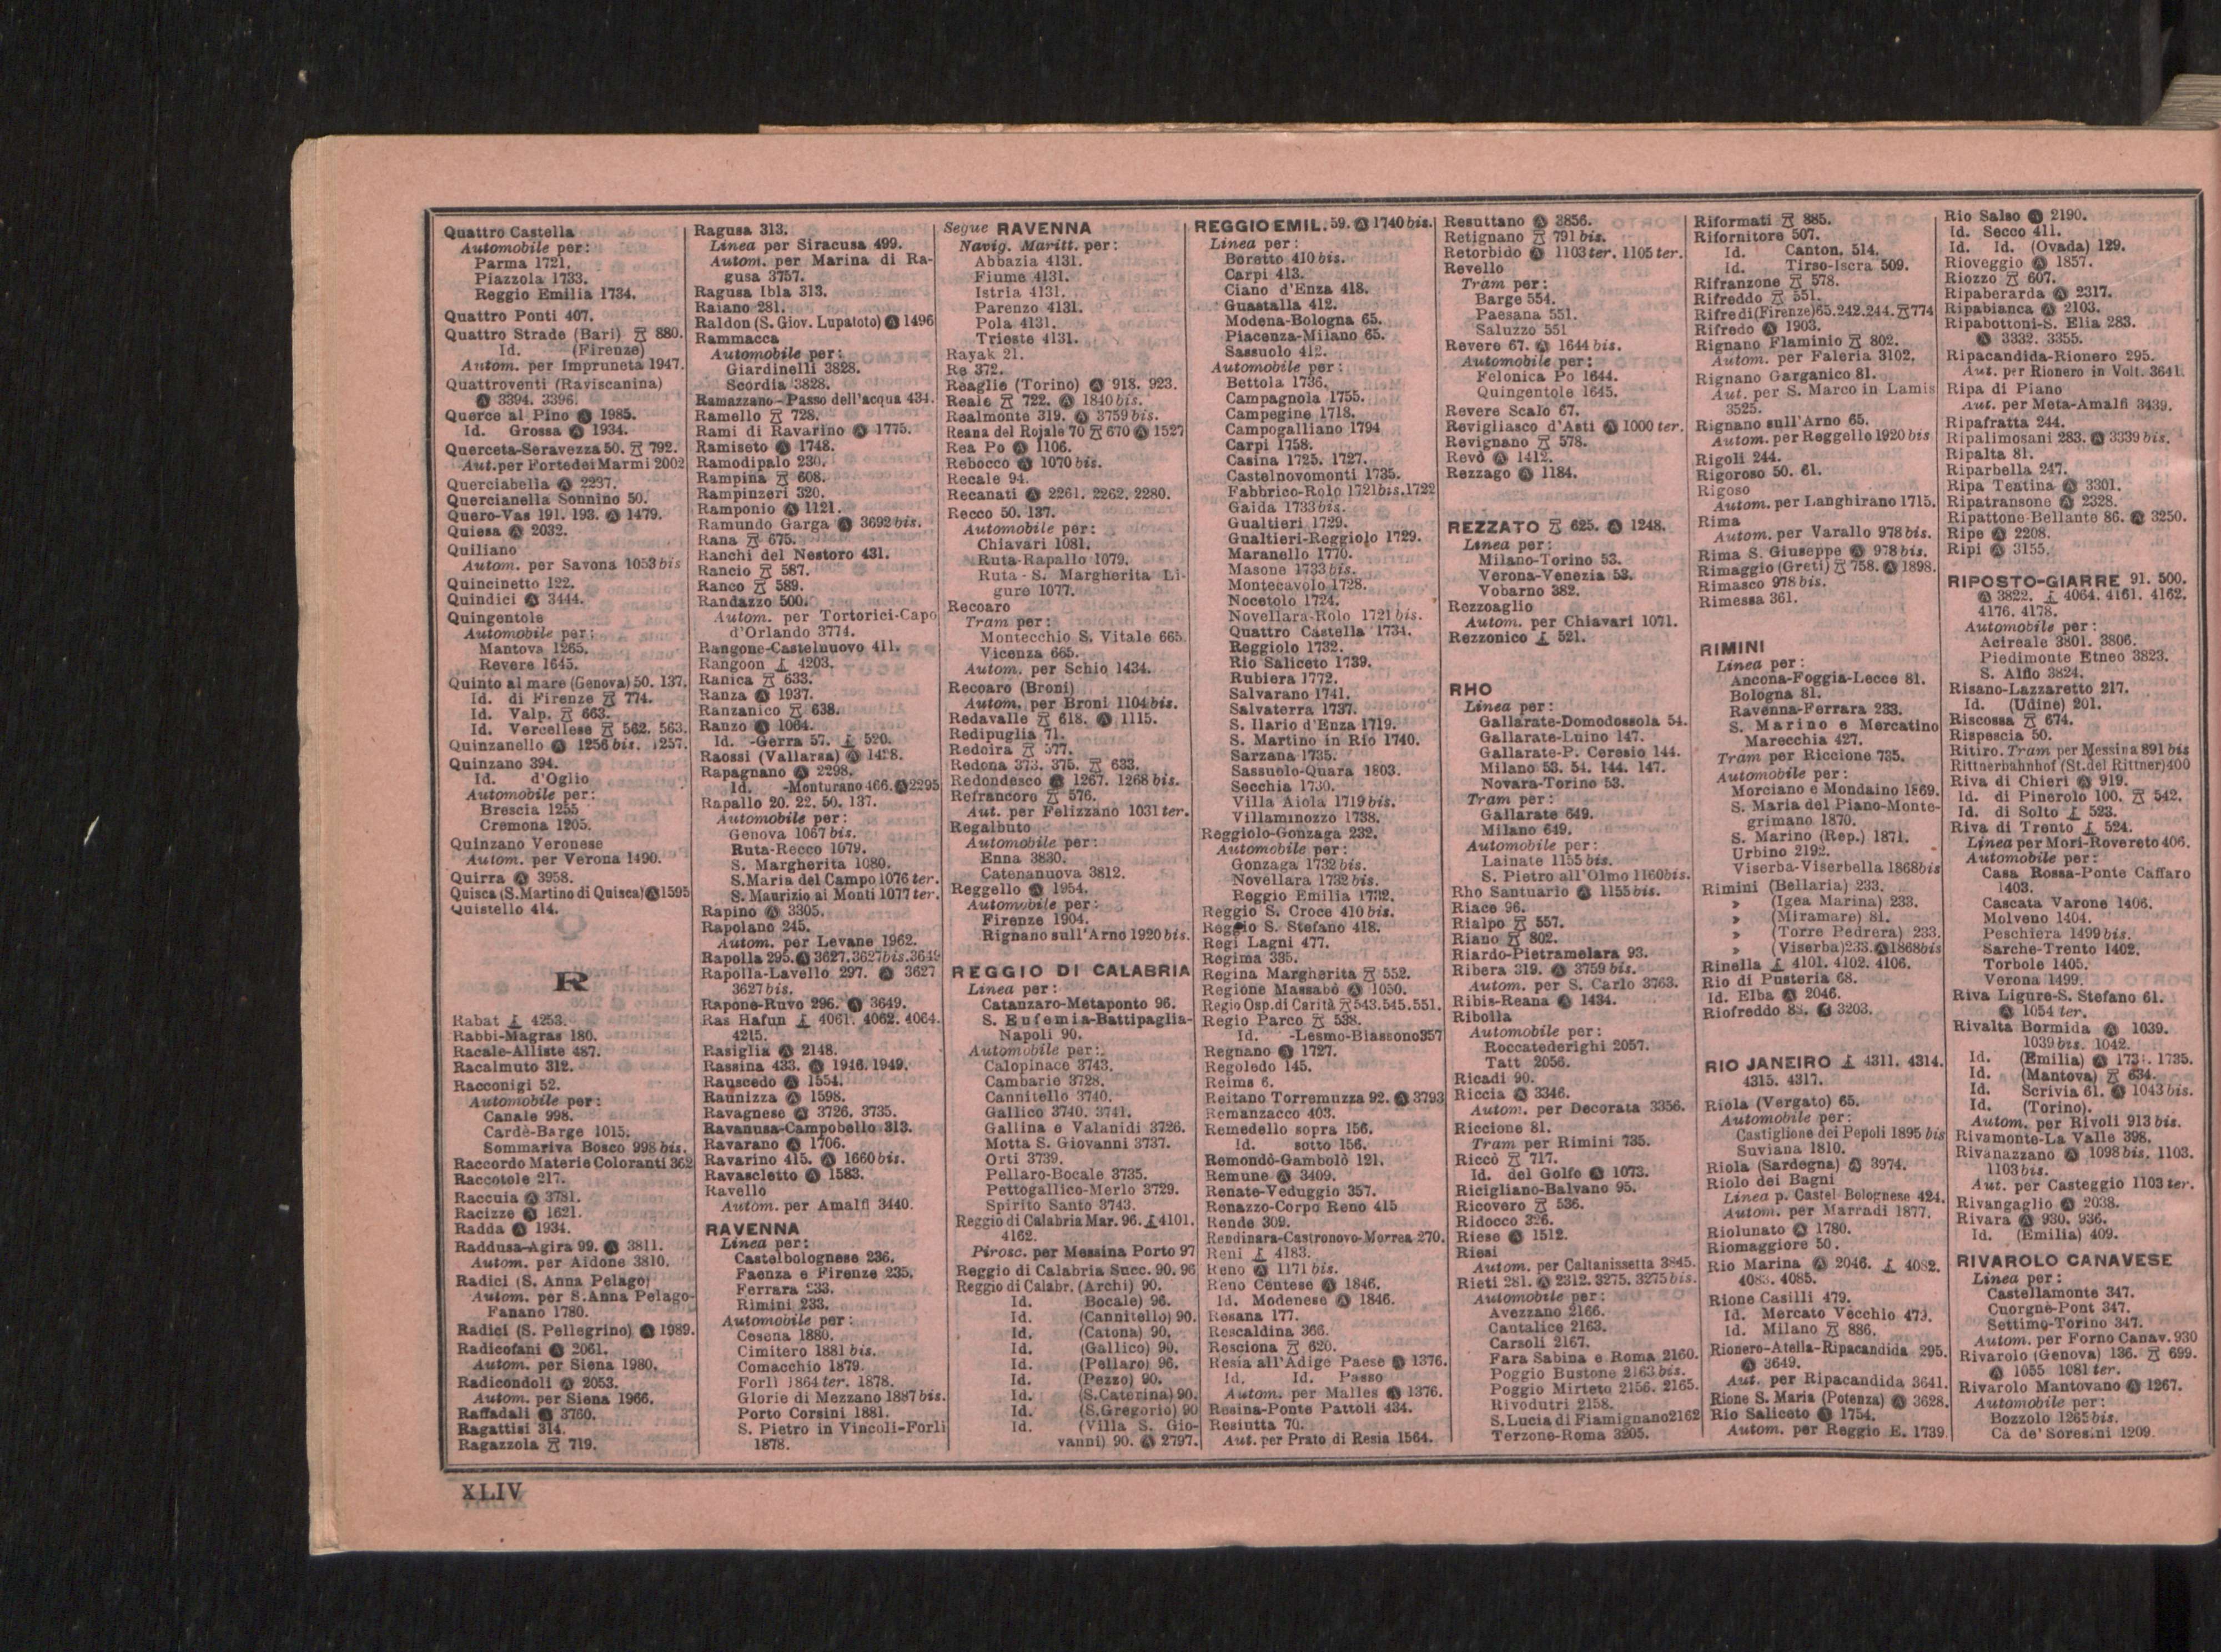 Quattro Castella
Automobile per:
Parma 1721.
Piazzola 1733.
Reggio Emilia 1734.
Quattro Ponti 407.
Quattro Strade (Bari) 880.
Id. (Firenze)
Autom. per Impruneta 1947.
Quattroventi (Raviscanina)
3394. 3396.
Querce al Pino 1985.
Id. Grossa 1934.
Querceta-Seravezza 50. 792.
Aut. per Forte dei Marmi 2002
Querciabella 2237.
Quercianella Sonnino 50.
Quero-Vas 191. 193. 1479.
Quiesa 2032.
Quiliano
Autom. per Savona 1053 bis
Quincinetto 122.
Quindici 3444.
Quingentole
Automobile per:
Mantova 1265.
Revere 1645.
Quinto al mare (Genova) 50. 137.
Id. di Firenze 774.
Id. Valp. 663.
Id. Vercellese 562. 563.
Quinzanello 1256 bis. 1257.
Quinzano 394.
Id. d'Oglio
Automobile per:
Brescia 1255
Cremona 1205.
Quinzano Veronese
Autom. per Verona 1490.
Quirra 3958.
Quisca (S. Martino di Quisca) 1595
Quistello 414.
R
Rabat 4253.
Rabbi-Magras 180.
Racale-Alliste 487.
Racalmuto 312.
Racconigi 52.
Automobile per:
Canale 998.
Cardè-Barge 1015.
Sommariva Bosco 998 bis.
Raccordo Materie Coloranti 362
Raccotole 217.
Raccuia 3781.
Racizze 1621.
Radda 1934.
Raddusa-Agira 99. 3811.
Autom. per Aidone 3810.
Radici (S. Anna Pelago)
Autom. per S. Anna Pelago-
Fanano 1780.
Radici (S. Pellegrino) 1989.
Radicofani 2061.
Autom. per Siena 1980.
Radicondoli 2053.
Autom. per Siena 1966.
Raffadali 3760.
Ragattisi 314.
Ragazzola 719.
Ragusa 313.
Linea per Siracusa 499.
Autom. per Marina di Ra-
gusa 3757.
Ragusa Ibla 313.
Raiano 281.
Raldon (S. Giov. Lupatoto) 1496
Rammacca
Automobile per:
Giardinelli 3828.
Scordia 3828.
Ramazzano-Passo dell'acqua 434.
Ramello 728.
Rami di Ravarino 1775.
Ramiseto 1748.
Ramodipalo 230.
Rampina 608.
Rampinzeri 320.
Ramponio 1121.
Ramundo Garga 3692 bis.
Rana 675.
Ranchi del Nestoro 431.
Rancio 587.
Ranco 589.
Randazzo 500.
Autom. per Tortorici-Capo
d'Orlando 3774.
Rangone-Castelnuovo 411.
Rangoon 4203.
Ranica 633.
Ranza 1937.
Ranzanico 638.
Ranzo 1064.
Id. -Gerra 57. 520.
Raossi (Vallarsa) 1428.
Rapagnano 2298.
Id. -Monturano 466. 2295
Rapallo 20. 22. 50. 137.
Automobile per:
Genova 1067 bis.
Ruta-Recco 1079.
S. Margherita 1080.
S. Maria del Campo 1076 ter.
S. Maurizio ai Monti 1077 ter.
Rapino 3305.
Rapolano 245.
Autom. per Levane 1962.
Rapolla 295. 3627. 3627 bis. 3649
Rapolla-Lavello 297. 3627
3627 bis.
Rapone-Ruvo 296. 3649.
Ras Hafun 4061. 4062. 4064.
4215.
Rasiglia 2148.
Rassina 433. 1946. 1949.
Rauscedo 1554.
Raunizza 1598.
Ravagnese 3726. 3735.
Ravanusa-Campobello 313.
Ravarano 1706.
Ravarino 415. 1660 bis.
Ravascletto 1583.
Ravello
Autom. per Amalfi 3440.
RAVENNA
Linea per:
Castelbolognese 236.
Faenza e Firenze 235.
Ferrara 233.
Rimini 233.
Automobile per:
Cesena 1880.
Cimitero 1881 bis.
Comacchio 1879.
Forlì 1864 ter. 1878.
Glorie di Mezzano 1887 bis.
Porto Corsini 1881.
S. Pietro in Vincoli-Forlì
1878.
Segue RAVENNA
Navig. Maritt. per:
Abbazia 4131.
Fiume 4131.
Istria 4131.
Parenzo 4131.
Pola 4131.
Trieste 4131.
Rayak 21.
Re 372.
Reaglie (Torino) 918. 923.
Reale 722. 1840 bis.
Realmonte 319. 3759 bis.
Reana del Rojale 70 670 1527
Rea Po 1106.
Rebocco 1070 bis.
Recale 94.
Recanati 2261. 2262. 2280.
Recco 50. 137.
Automobile per:
Chiavari 1081.
Ruta-Rapallo 1079.
Ruta - S. Margherita Li-
gure 1077.
Recoaro
Tram per:
Montecchio S. Vitale 665.
Vicenza 665.
Autom. per Schio 1434.
Recoaro (Broni)
Autom. per Broni 1104 bis.
Redavalle 618. 1115.
Redipuglia 71.
Redoira 577.
Redona 373. 375. 633.
Redondesco 1267. 1268 bis.
Refrancore 576.
Aut. per Felizzano 1031 ter.
Regalbuto
Automobile per:
Enna 3830.
Catenanuova 3812.
Reggello 1954.
Automobile per:
Firenze 1904.
Rignano sull'Arno 1920 bis.
REGGIO DI CALABRIA
Linea per:
Catanzaro-Metaponto 96.
S. Eufemia-Battipaglia-
Napoli 90.
Automobile per:
Calopinace 3743.
Cambarie 3728.
Cannitello 3740.
Gallico 3740. 3741.
Gallina e Valanidi 3726.
Motta S. Giovanni 3737.
Orti 3739.
Pellaro-Bocale 3735.
Pettogallico-Merlo 3729.
Spirito Santo 3743.
Reggio di Calabria Mar. 96. 4101.
4162.
Pirosc. per Messina Porto 97
Reggio di Calabria Succ. 90. 96
Reggio di Calabr. (Archi) 90.
Id. Bocale) 96.
Id. (Cannitello) 90.
Id. (Catona) 90.
Id. (Gallico) 90.
Id. (Pellaro) 96.
Id. (Pezzo) 90.
Id. (S. Caterina) 90.
Id. (S. Gregorio) 90
Id. (Villa S. Gio-
vanni) 90. 2797.
REGGIO EMIL. 59. 1740 bis.
Linea per:
Boretto 410 bis.
Carpi 413.
Ciano d'Enza 418.
Guastalla 412.
Modena-Bologna 65.
Piacenza-Milano 65.
Sassuolo 412.
Automobile per:
Bettola 1736.
Campagnola 1755.
Campegine 1718.
Campogalliano 1794
Carpi 1758.
Casina 1725. 1727.
Castelnovomonti 1735.
Fabbrico-Rolo 1721 bis. 1722
Gaida 1733 bis.
Gualtieri 1729.
Gualtieri-Reggiolo 1729.
Maranello 1770.
Masone 1733 bis.
Montecavolo 1728.
Nocetolo 1724.
Novellara-Rolo 1721 bis.
Quattro Castella 1734.
Reggiolo 1732.
Rio Saliceto 1739.
Rubiera 1772.
Salvarano 1741.
Salvaterra 1737.
S. Ilario d'Enza 1719.
S. Martino in Rio 1740.
Sarzana 1735.
Sassuolo-Quara 1803.
Secchia 1730.
Villa Aiola 1719 bis.
Villaminozzo 1738.
Reggiolo-Gonzaga 232.
Automobile per:
Gonzaga 1732 bis.
Novellara 1732 bis.
Reggio Emilia 1732.
Reggio S. Croce 410 bis.
Reggio S. Stefano 418.
Regi Lagni 477.
Regima 335.
Regina Margherita 552.
Regione Massabò 1050.
Regio Osp. di Carità 543. 545. 551.
Regio Parco 538.
Id. -Lesmo-Biassono 357
Regnano 1727.
Regoledo 145.
Reims 6.
Reitano Torremuzza 92. 3793
Remanzacco 403.
Remedello sopra 156.
Id. sotto 156.
Remondò-Gambolò 121.
Remune 3409.
Renate-Veduggio 357.
Renazzo-Corpo Reno 415
Rende 309.
Rendinara-Castronovo-Morrea 270.
Reni 4183.
Reno 1171 bis.
Reno Centese 1846.
Id. Modenese 1846.
Resana 177.
Rescaldina 366.
Resciona 620.
Resia all'Adige Paese 1376.
Id. Id. Passo
Autom. per Malles 1376.
Resina-Ponte Pattoli 434.
Resiutta 70.
Aut. per Prato di Resia 1564.
Resuttano 3856.
Retignano 791 bis.
Retorbido 1103 ter. 1105 ter.
Revello
Tram per:
Barge 554.
Paesana 551.
Saluzzo 551
Revere 67. 1644 bis.
Automobile per:
Felonica Po 1644.
Quingentole 1645.
Revere Scalo 67.
Revigliasco d'Asti 1000 ter.
Revignano 578.
Revò 1412.
Rezzago 1184.
REZZATO 625. 1248.
Linea per:
Milano-Torino 53.
Verona-Venezia 53.
Vobarno 382.
Rezzoaglio
Autom. per Chiavari 1071.
Rezzonico 521.
RHO
Linea per:
Gallarate-Domodossola 54.
Gallarate-Luino 147.
Gallarate-P. Ceresio 144.
Milano 53. 54. 144. 147.
Novara-Torino 53.
Tram per:
Gallarate 649.
Milano 649.
Automobile per:
Lainate 1155 bis.
S. Pietro all'Olmo 1160 bis.
Rho Santuario 1155 bis.
Riace 96.
Rialpo 557.
Riano 802.
Riardo-Pietramelara 93.
Ribera 319. 3759 bis.
Autom. per S. Carlo 3763.
Ribis-Reana 1434.
Ribolla
Automobile per:
Roccatederighi 2057.
Tatt 2056.
Ricadi 90.
Riccia 3346.
Autom. per Decorata 3356.
Riccione 81.
Tram per Rimini 735.
Riccò 717.
Id. del Golfo 1073.
Ricigliano-Balvano 95.
Ricovero 536.
Ridocco 326.
Riese 1512.
Riesi
Autom. per Caltanissetta 3845.
Rieti 281. 2312. 3275. 3275 bis.
Automobile per:
Avezzano 2166.
Cantalice 2163.
Carsoli 2167.
Fara Sabina e Roma 2160.
Poggio Bustone 2163 bis.
Poggio Mirteto 2156. 2165.
Rivodutri 2158.
S. Lucia di Fiamignano 2162
Terzone-Roma 3205.
Riformati 885.
Rifornitore 507.
Id. Canton. 514.
Id. Tirso-Iscra 509.
Rifranzone 578.
Rifreddo 551.
Rifredi (Firenze) 65. 242. 244. 774
Rifredo 1903.
Rignano Flaminio 802.
Autom. per Faleria 3102.
Rignano Garganico 81.
Aut. per S. Marco in Lamis
3525.
Rignano sull'Arno 65.
Autom. per Reggello 1920 bis
Rigoli 244.
Rigoroso 50. 61.
Rigoso
Autom. per Langhirano 1715.
Rima
Autom. per Varallo 978 bis.
Rima S. Giuseppe 978 bis.
Rimaggio (Greti) 758. 1898.
Rimasco 978 bis.
Rimessa 361.
RIMINI
Linea per:
Ancona-Foggia-Lecce 81.
Bologna 81.
Ravenna-Ferrara 233.
S. Marino e Mercatino
Marecchia 427.
Tram per Riccione 735.
Automobile per:
Morciano e Mondaino 1869.
S. Maria del Piano-Monte-
grimano 1870.
S. Marino (Rep.) 1871.
Urbino 2192.
Viserba-Viserbella 1868 bis
Rimini (Bellaria) 233.
» (Igea Marina) 233.
» (Miramare) 81.
» (Torre Pedrera) 233.
» (Viserba) 233. 1868 bis
Rinella 4101. 4102. 4106.
Rio di Pusteria 68.
Id. Elba 2046.
Riofreddo 88. 3203.
RIO JANEIRO 4311. 4314.
4315. 4317.
Riola (Vergato) 65.
Automobile per:
Castiglione dei Pepoli 1895 bis
Suviana 1810.
Riola (Sardegna) 3974.
Riolo dei Bagni
Linea p. Castel Bolognese 424.
Autom. per Marradi 1877.
Riolunato 1780.
Riomaggiore 50.
Rio Marina 2046. 4082.
4083. 4085.
Rione Casilli 479.
Id. Mercato Vecchio 473.
Id. Milano 886.
Rionero-Atella-Ripacandida 295.
3649.
Aut. per Ripacandida 3641.
Rione S. Maria (Potenza) 3628.
Rio Saliceto 1754.
Autom. per Reggio E. 1739
Rio Salso 2190.
Id. Secco 411.
Id. Id. (Ovada) 129.
Rioveggio 1857.
Riozzo 607.
Ripaberarda 2317.
Ripabianca 2103.
Ripabottoni-S. Elia 283.
3332. 3355.
Ripacandida-Rionero 295.
Aut. per Rionero in Volt. 3641.
Ripa di Piano
Aut. per Meta-Amalfi 3439.
Ripafratta 244.
Ripalimosani 283. 3339 bis.
Ripalta 81.
Riparbella 247.
Ripa Teatina 3301.
Ripatransone 2328.
Ripattone-Bellante 86. 3250.
Ripe 2208.
Ripi 3155.
RIPOSTO-GIARRE 91. 500.
3822. 4064. 4161. 4162.
4176. 4178.
Automobile per:
Acireale 3801. 3806.
Piedimonte Etneo 3823.
S. Alfio 3824.
Risano-Lazzaretto 217.
Id. (Udine) 201.
Riscossa 674.
Rispescia 50.
Ritiro. Tram per Messina 891 bis
Rittnerbahnhof (St. del Rittner) 400
Riva di Chieri 919.
Id. di Pinerolo 100. 542.
Id. di Solto 523.
Riva di Trento 524.
Linea per Mori-Rovereto 406.
Automobile per:
Casa Rossa-Ponte Caffaro
1403.
Cascata Varone 1406.
Molveno 1404.
Peschiera 1499 bis.
Sarche-Trento 1402.
Torbole 1405.
Verona 1499.
Riva Ligure-S. Stefano 61.
1054 ter.
Rivalta Bormida 1039.
1039 bis. 1042.
Id. (Emilia) 1735.
Id. (Mantova) 634.
Id. Scrivia 61. 1043 bis.
Id. (Torino).
Autom. per Rivoli 913 bis.
Rivamonte-La Valle 398.
Rivanazzano 1098 bis. 1103.
1103 bis.
Aut. per Casteggio 1103 ter.
Rivangaglio 2038.
Rivara 930. 936.
Id. (Emilia) 409.
RIVAROLO CANAVESE
Linea per:
Castellamonte 347.
Cuorgnè-Pont 347.
Settimo-Torino 347.
Autom. per Forno Canav. 930
Rivarolo (Genova) 136. 699.
1055 1081 ter.
Rivarolo Mantovano 1267.
Automobile per:
Bozzolo 1265 bis.
Cà de' Soresini 1209.
XLIV